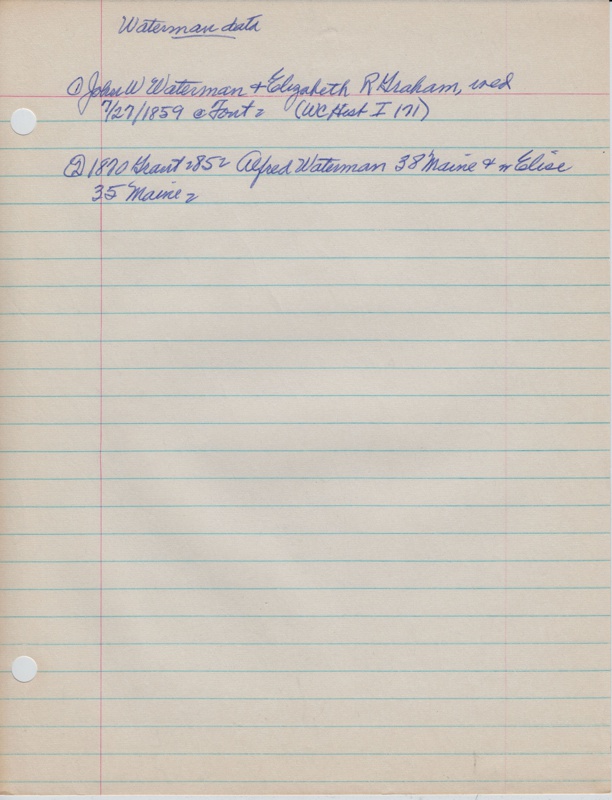 Waterman data
① John W Waterman & Elizabeth R Graham, wed
7/27/1859 @ Font
(WC Hist I 171)
② 1870 Grant 285 Alfred Waterman 38 Maine & w Elise
35 Maine